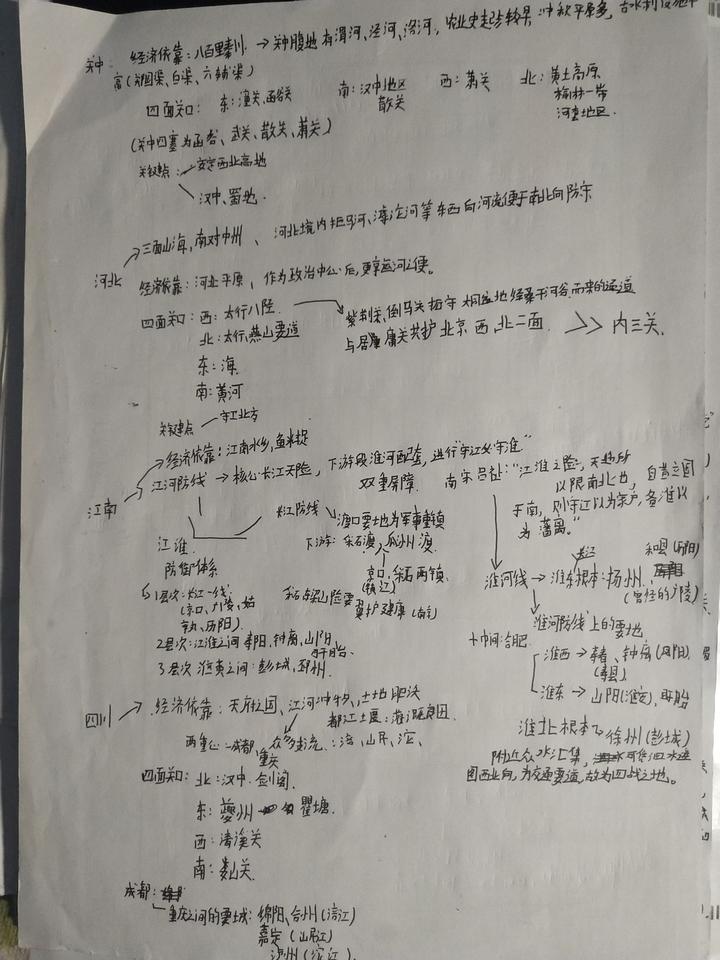 关中 经济依靠:八百里秦川 → 关中腹地有渭河、泾河、洛河,农业史走强较早 冲积平原多,古水利设施丰
富(郑国渠、白渠、六辅渠)
四面关口: 东:潼关、函谷关 南:汉中地区 散关 西:萧关 北:黄土高原 榆林一带 河套地区
(关中四塞为函谷、武关、散关、萧关)
关键点: 安定西北高地
汉中、蜀地.
河北 三面山海,南对中州、河北境内拒马河、滹沱河等东西向河流便于南北向防守
经济依靠:河北平原、作为政治中心后,更享运河之便。
四面关口:西:太行八陉 → 紫荆关、倒马关扼守大同盆地经桑干河谷而来的通道
北:太行、燕山要道 与居庸关共护北京西、北二面 >> 内三关.
东:海
南:黄河
关键点 — 守卫北方
江南 经济依靠:江南水乡,鱼米
江河防线 → 核心:长江天险,下游段淮河配合,进行“守江必守淮”
双重屏障. 南宋吕祉:“江淮之险,天地所
以限南北也,自昔立国
于南,则守江以为家户,备淮以
为藩篱。”
江淮 防御体系
长江防线 渡口要地为军事重镇
下游:采石渡、瓜州渡.
京口、采石两镇.
(镇江)
采石梁山险要 翼护建康(南京)
1层次:长江一线:
(京口、广陵、姑
孰、历阳)
2层次:江淮之间 寿阳、钟离、山阳、
盱眙.
3层次 淮黄之间:彭城、邳州.
淮河线 → 淮东根本:扬州. (曾经的广陵)
长江 和县(历阳)
淮河防线上的要地
中间:合肥
淮西 → 寿春、钟离(凤阳).
(寿县)
淮东 → 山阳(淮安),盱眙
淮北根本 徐州(彭城)
附近众水汇集,可借泗水进
图西北向,为交通要道,故为四战之地。
四川 → 经济依靠:天府之国、江河冲积,土地肥沃
都江堰:灌溉良田.
两重心—成都、重庆
众多支流::涪、岷、沱、
四面关口:北:汉中 剑阁.
东:夔州 瞿塘.
西:清溪关
南:娄山关.
成都:
重庆之间的要城:绵阳、合州(涪江)
嘉定(岷江)
泸州(沱江)